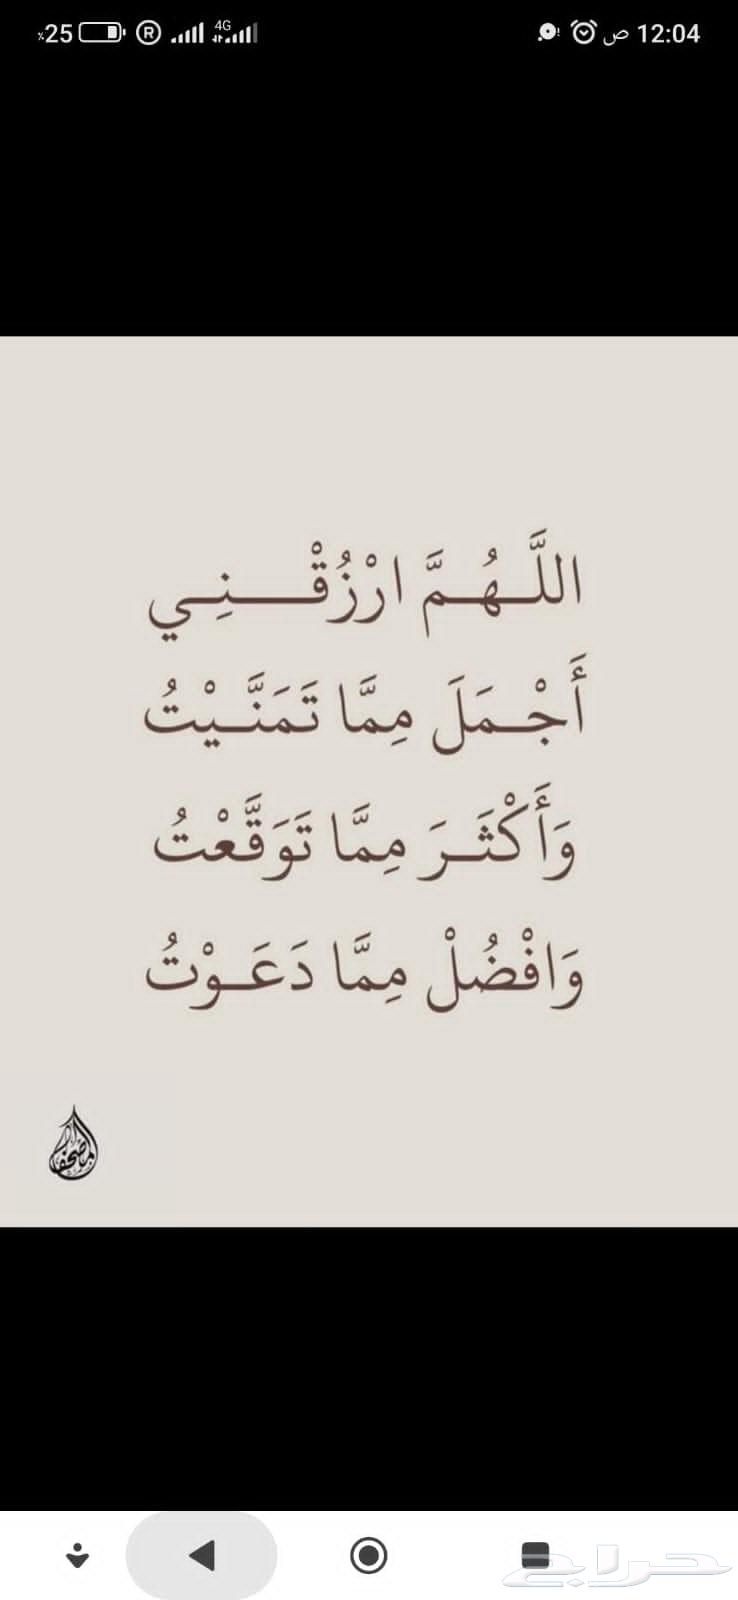 12:04 ص
4G
%25
اللَّهُمَّ ارْزُقْنِي
أَجْمَلَ مِمَّا تَمَنَّيْتُ
وَأَكْثَرَ مِمَّا تَوَقَّعْتُ
وَافْضُلْ مِمَّا دَعَوْتُ
حراج